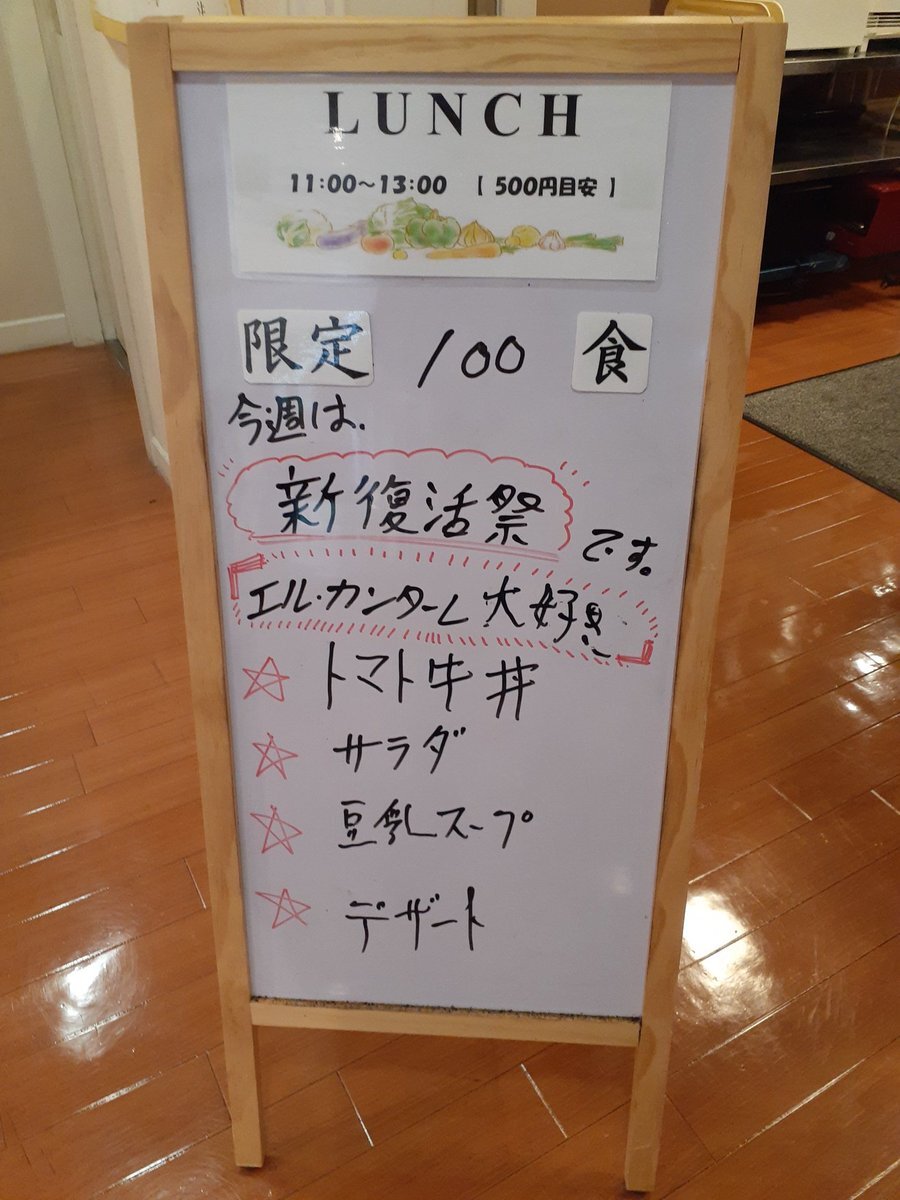 LUNCH
11:00~13:00 【 500円目安 】
限定 100 食
今週は、
新復活祭 です。
「エル・カンターレ大好き」
トマト牛丼
サラダ
豆乳スープ
デザート